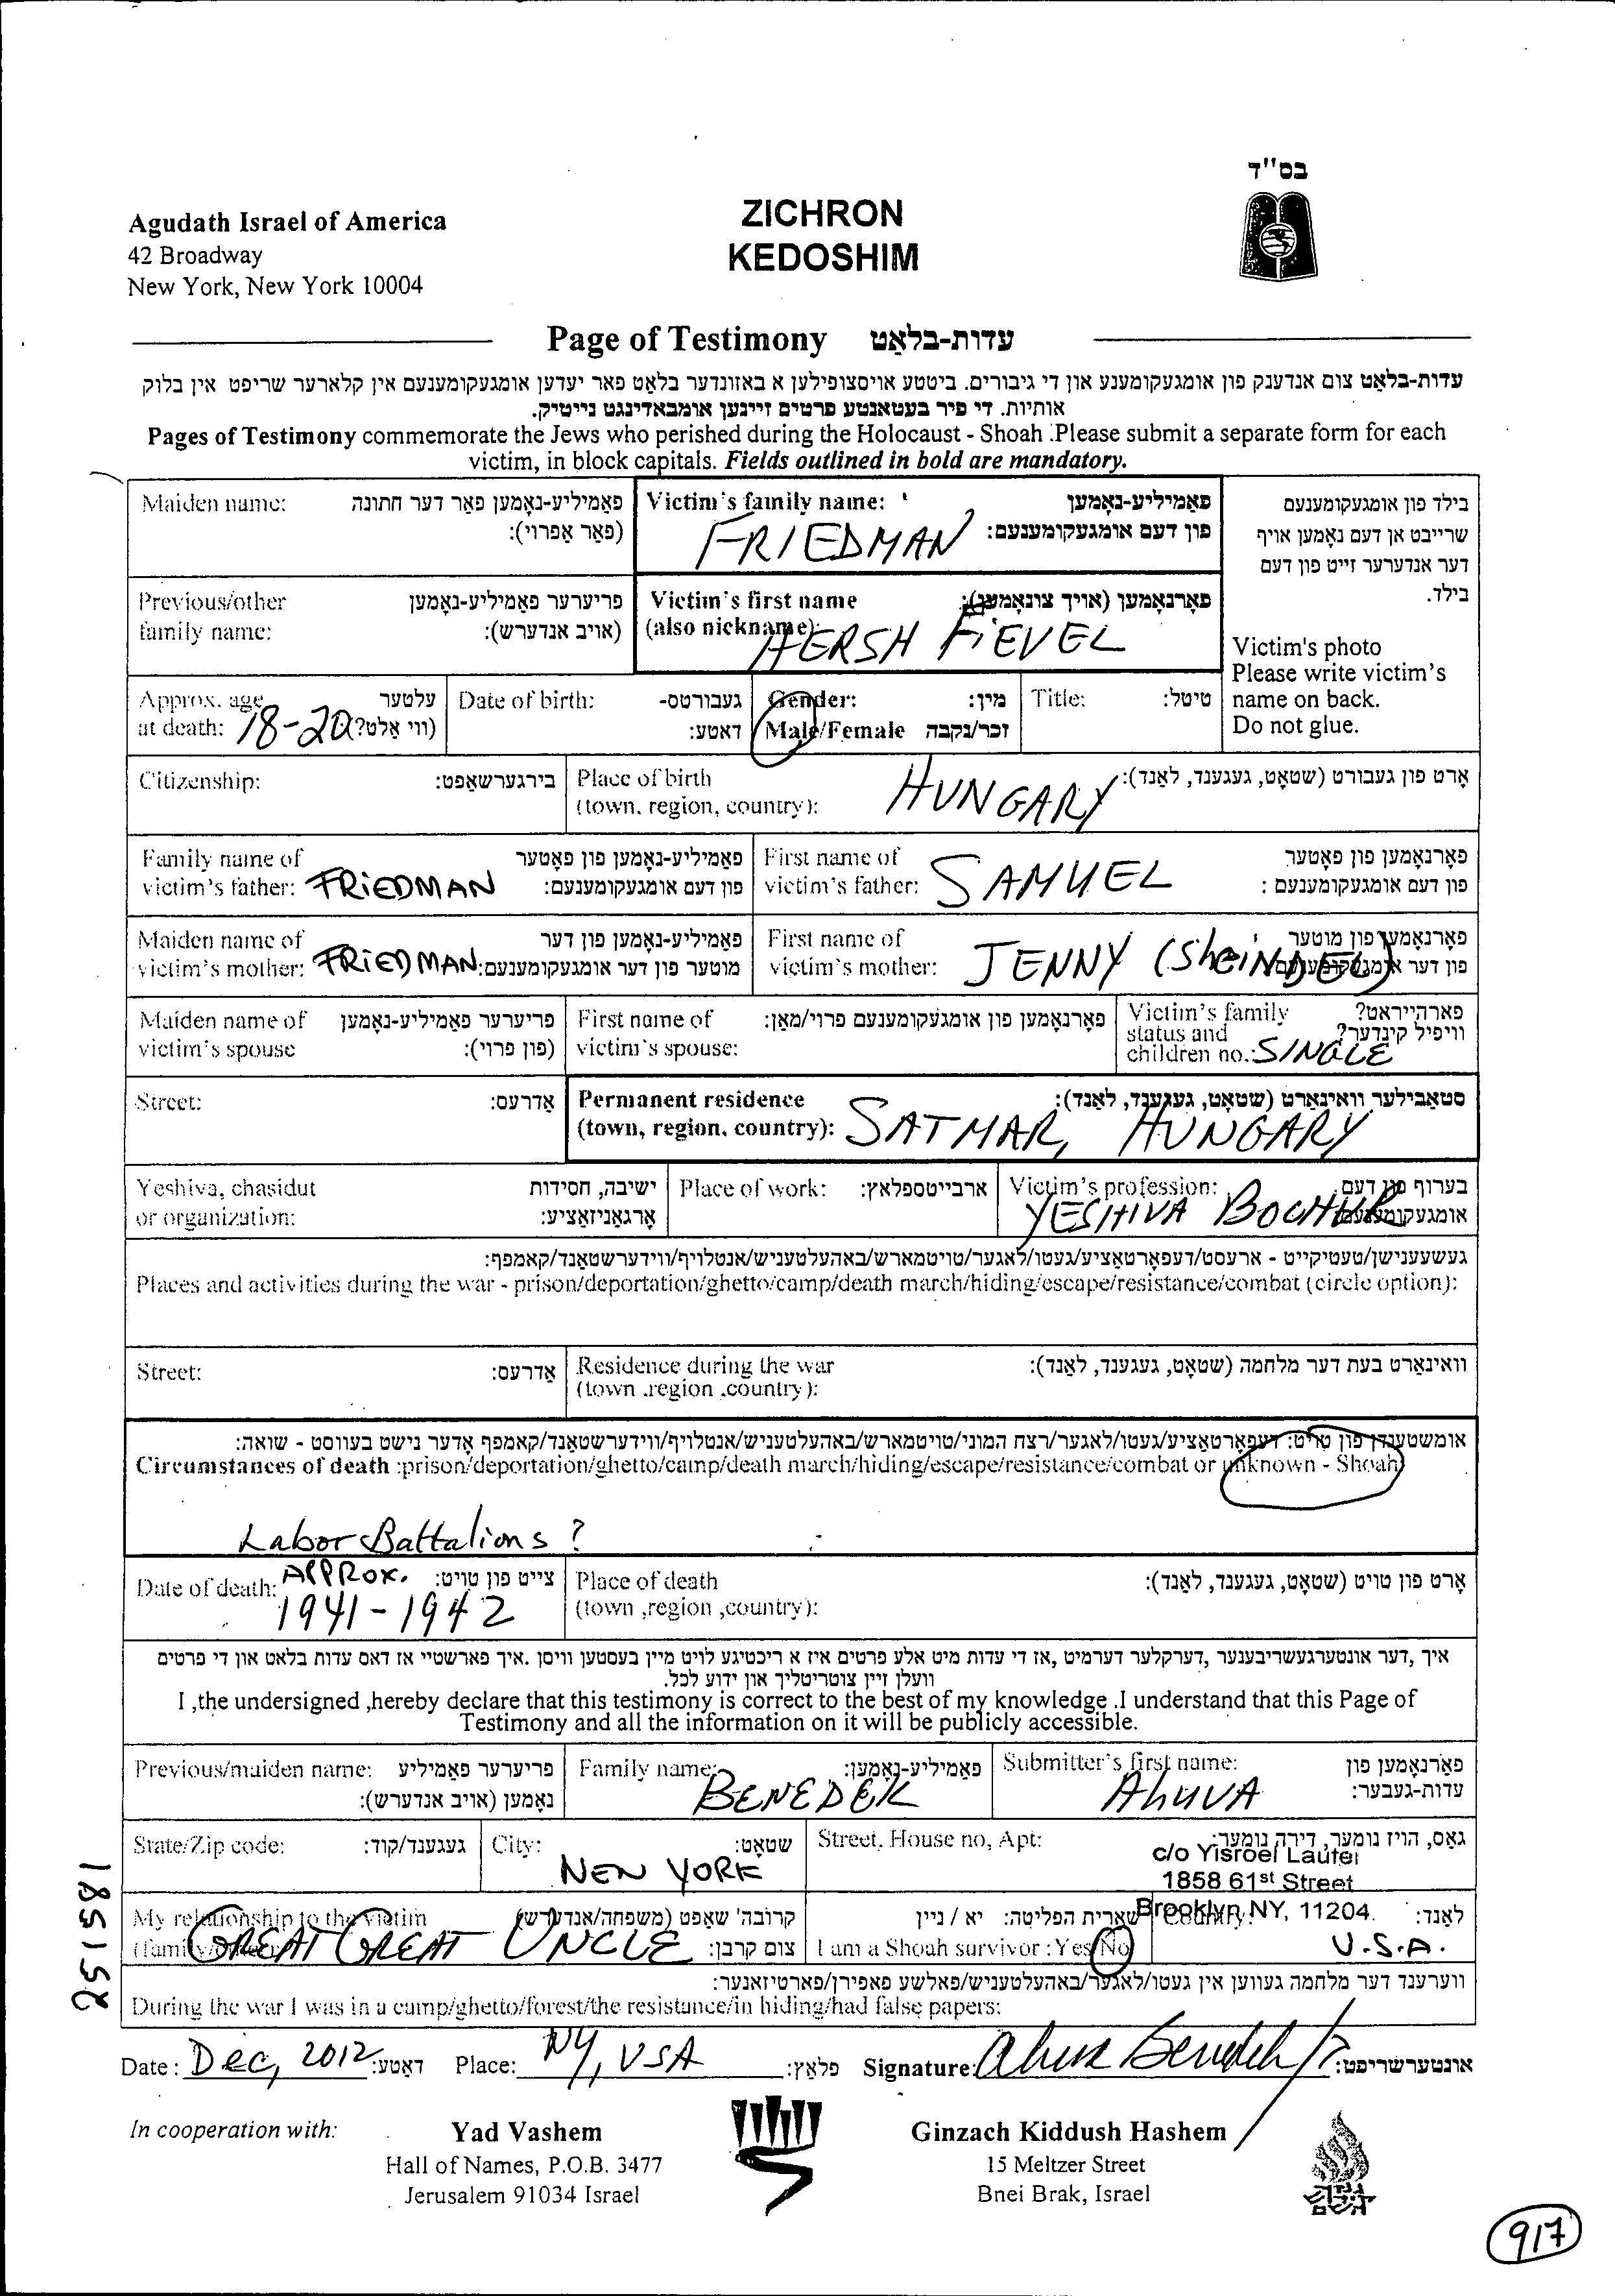 בס"ד
Agudath Israel of America
42 Broadway
New York, New York 10004
ZICHRON
KEDOSHIM
Page of Testimony עדות-בלאַט
עדות-בלאַט צום אנדענק פון אומגעקומענע און די גיבורים. ביטטע אויסצופילען א באזונדער בלאַט פאר יעדען אומגעקומענעם אין קלארער שריפט אין בלוק
אותיות. די פיר בעטאנטע פרטים זיינען אומבאדינגט נייטיק.
Pages of Testimony commemorate the Jews who perished during the Holocaust - Shoah .Please submit a separate form for each
victim, in block capitals. Fields outlined in bold are mandatory.
Maiden name: פאַמיליע-נאָמען פאַר דער חתונה
(פאַר אַפרוי):
Victim's family name: פאַמיליע-נאָמען
פון דעם אומגעקומענעם:
FRIEDMAN
בילד פון אומגעקומענעם
שרייבט אן דעם נאָמען אויף
דער אנדערער זייט פון דעם
בילד.
Victim's photo
Please write victim's
name on back.
Do not glue.
Previous/other פריערער פאַמיליע-נאָמען
family name: (אויב אנדערש):
Victim's first name פאָרנאָמען (אויך צונאָמען):
(also nickname):
HERSH FiEVEL
Approx. age עלטער
at death: 18-20 (ווי אַלט?)
Date of birth: געבורטס-
דאטע:
Gender: מין:
Male/Female זכר/נקבה
Title: טיטל:
Citizenship: בירגערשאַפט:
Place of birth אָרט פון געבורט (שטאָט, געגענד, לאַנד):
(town, region, country):
HUNGARY
Family name of פאַמיליע-נאָמען פון פאָטער
victim's father: FRiEDMAN פון דעם אומגעקומענעם:
First name of פאָרנאָמען פון פאָטער
victim's father: SAMUEL פון דעם אומגעקומענעם :
Maiden name of פאַמיליע-נאָמען פון דער
victim's mother: FRiEDMAN מוטער פון דער אומגעקומענעם:
First name of פאָרנאָמען פון מוטער
victim's mother: JENNY (SheiNDEL) פון דער אומגעקומענעם
Maiden name of פריערער פאַמיליע-נאָמען
victim's spouse (פון פרוי):
First name of פאָרנאָמען פון אומגעקומענעם פרוי/מאַן:
victim's spouse:
Victim's family פארהייראט?
status and וויפיל קינדער?
children no.: SINGLE
Street: אַדרעס:
Permanent residence סטאַבילער וואוינאָרט (שטאָט, געגענד, לאַנד):
(town, region, country): SATMAR, HUNGARY
Yeshiva, chasidut ישיבה, חסידות
or organization: אָרגאַניזאַציע:
Place of work: ארבייטספלאַץ:
Victim's profession: בערוף פון דעם
אומגעקומענעם
YESHIVA BOCHUR
געשעענישן/טעטיקייט - ארעסט/דעפּאָרטאַציע/געטו/לאַגער/טויטמארש/באהעלטעניש/אנטלויף/ווידערשטאַנד/קאמפף:
Places and activities during the war - prison/deportation/ghetto/camp/death march/hiding/escape/resistance/combat (circle option):
Street: אַדרעס:
Residence during the war וואוינאָרט בעת דער מלחמה (שטאָט, געגענד, לאַנד):
(town .region .country):
אומשטענדן פון טויט: דעפּאָרטאַציע/געטו/לאַגער/רצח המוני/טויטמארש/באהעלטעניש/אנטלויף/ווידערשטאַנד/קאמפף אָדער נישט בעוווסט - שואה:
Circumstances of death :prison/deportation/ghetto/camp/death march/hiding/escape/resistance/combat or unknown - Shoah
Labor Battalions ?
Date of death: APPROX. צייט פון טויט:
1941-1942
Place of death אָרט פון טויט (שטאָט, געגענד, לאַנד):
(town ,region ,country):
איך ,דער אונטערגעשריבענער ,דערקלער דערמיט ,אז די עדות מיט אלע פרטים איז א ריכטיגע לויט מיין בעסטען וויסן .איך פארשטיי אז דאס עדות בלאט און די פרטים
וועלן זיין צוטריטליך און ידוע לכל.
I ,the undersigned ,hereby declare that this testimony is correct to the best of my knowledge .I understand that this Page of
Testimony and all the information on it will be publicly accessible.
Previous/maiden name: פריערער פאַמיליע
נאָמען (אויב אנדערש):
Family name: פאַמיליע-נאָמען:
BENEDEK
Submitter's first name: פאָרנאָמען פון
עדות-געבער:
AhuVA
State/Zip code: געגענד/קוד:
City: שטאָט:
NEW YORK
Street, House no, Apt: גאַס, הויז נומער, דירה נומער:
c/o Yisroel Laufer
1858 61st Street
Brooklyn NY, 11204.
My relationship to the victim קרובה' שאַפט (משפּחה/אנדערש)
(family/other): צום קרבן:
GREAT GREAT UNCLE
שארית הפליטה: יא / ניין
I am a Shoah survivor :Yes/No
Country: לאַנד:
U.S.A.
ווערענד דער מלחמה געווען אין געטו/לאַגער/באהעלטעניש/פאלשע פאפירן/פארטיזאנער:
During the war I was in a camp/ghetto/forest/the resistance/in hiding/had false papers:
Date : Dec, 2012 דאַטע: Place: NY, USA פלאַץ: Signature: Ahuva Benedek אונטערשריפט:
In cooperation with:
Yad Vashem
Hall of Names, P.O.B. 3477
Jerusalem 91034 Israel
Ginzach Kiddush Hashem
15 Meltzer Street
Bnei Brak, Israel
251581
917